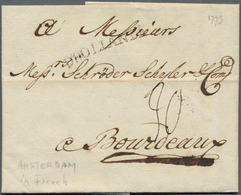 1775
a Messieurs
HOLLANDE
Mess.rs Schröder Schyler & Comp
20
a Bourdeaux
AMSTERDAM
in French